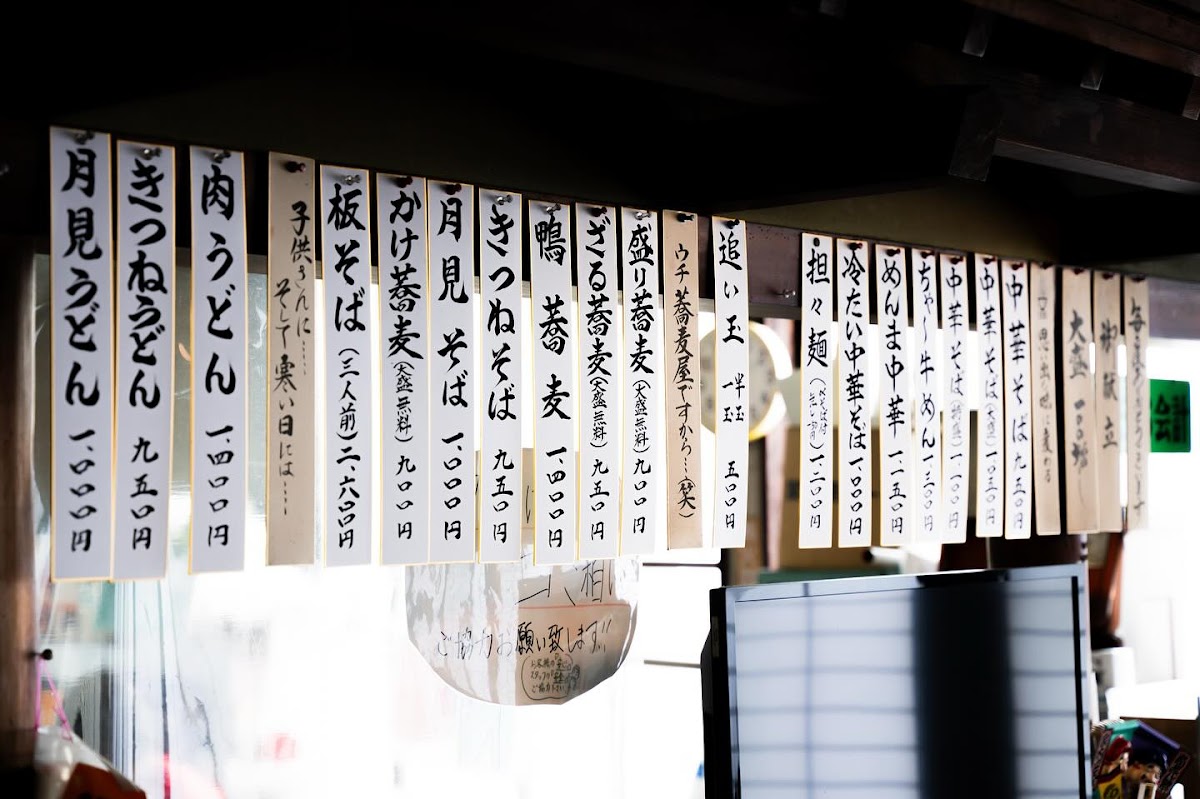 毎
御献立
大盛 一〇〇増
中華そば 九五〇円
中華そば(大盛) 一、〇五〇円
中華そば(特盛) 一、一〇〇円
ちゃーし牛めん 一、三〇〇円
めんま中華 一、一五〇円
冷たい中華そば 一、〇〇〇円
担々麺 一、二〇〇円
追い玉 半玉 一玉 五〇〇円
ウチ蕎麦屋ですから…(笑)
盛り蕎麦(大盛無料) 九〇〇円
ざる蕎麦(大盛無料) 九五〇円
鴨蕎麦 一、四〇〇円
きつねそば 九五〇円
月見そば 一、〇〇〇円
かけ蕎麦(大盛無料) 九〇〇円
板そば(三人前) 二、六〇〇円
子供さんに……そして寒い日には…
肉うどん 一、四〇〇円
きつねうどん 九五〇円
月見うどん 一、〇〇〇円
ご協力お願い致します!!
会計